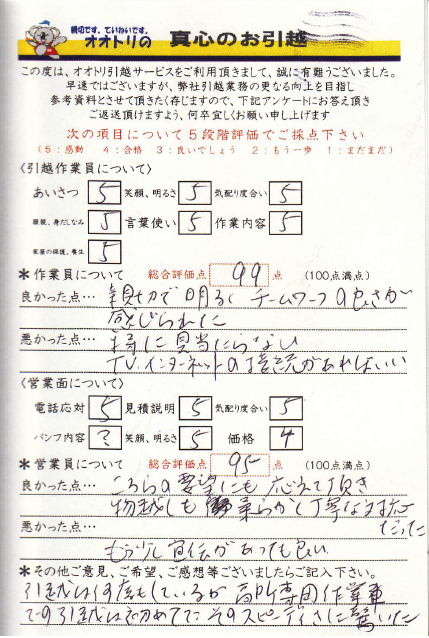 親切です。ていねいです。
オオトリの 真心のお引越
この度は、オオトリ引越サービスをご利用頂きまして、誠に有難うございました。
早速ではございますが、弊社引越業務の更なる向上を目指し
参考資料とさせて頂きたく存じますので、下記アンケートにお答え頂き
ご返送頂けますよう、何卒宜しくお願い申し上げます
次の項目について5段階評価でご採点下さい
(5:感動 4:合格 3:良いでしょう 2:もう一歩 1:まだまだ)
〈引越作業員について〉
あいさつ 5 笑顔、明るさ 5 気配り度合い 5
服装、身だしなみ 5 言葉使い 5 作業内容 5
家屋の保護、養生 5
*作業員について 総合評価点 99 点 (100点満点)
良かった点… 親切で明るくチームワークの良さが
感じられた
悪かった点… 特に見当たらない
TV・インターネットの接続があればいい
〈営業面について〉
電話応対 5 見積説明 5 気配り度合い 5
パンフ内容 ? 笑顔、明るさ 5 価格 4
*営業員について 総合評価点 95 点 (100点満点)
良かった点… こちらの要望にも応えて頂き
物越しも柔らかく丁寧な対応
だった
悪かった点…
もう少し宣伝があっても良い
*その他ご意見、ご希望、ご感想等ございましたらご記入下さい。
引越は何度もしているが 高所専用作業車
での引越は初めてで そのスピーディさに驚いた